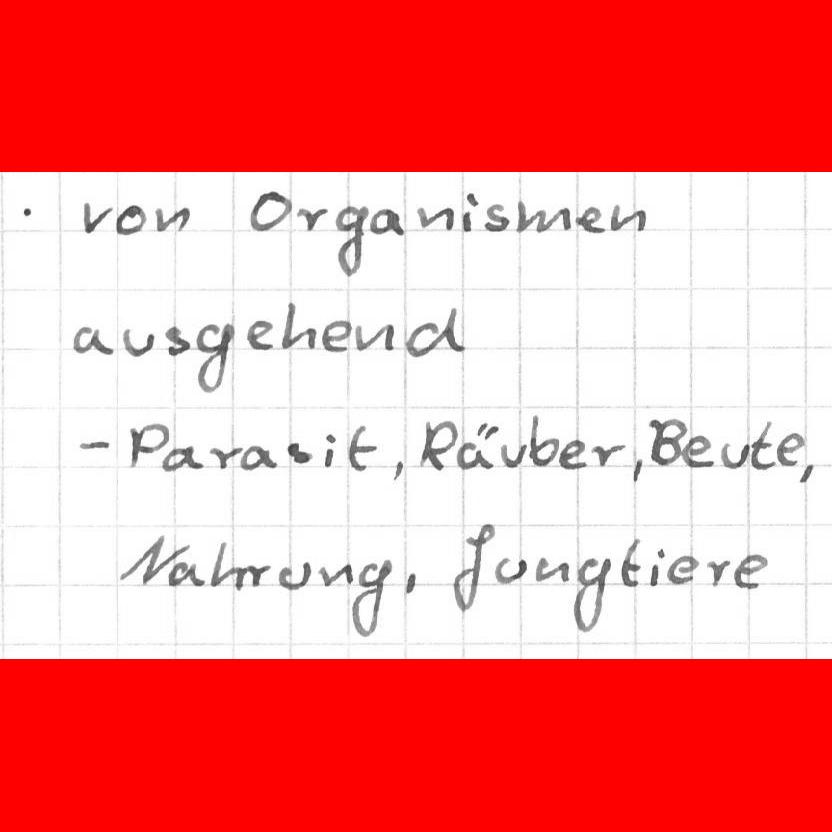 · von Organismen
ausgehend
- Parasit, Räuber, Beute,
Nahrung, Jungtiere